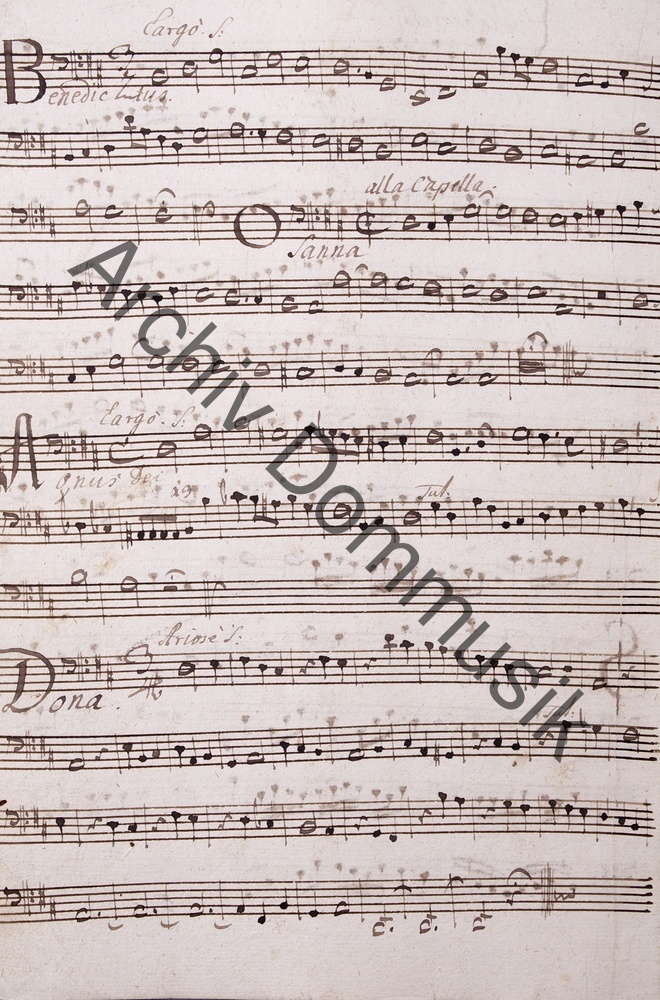 Largo. S:
Benedictus.
alla Capella.
Osanna
Largo. S:
Agnus Dei
Tut.
Ariose S:
Dona.
Archiv Dommusik